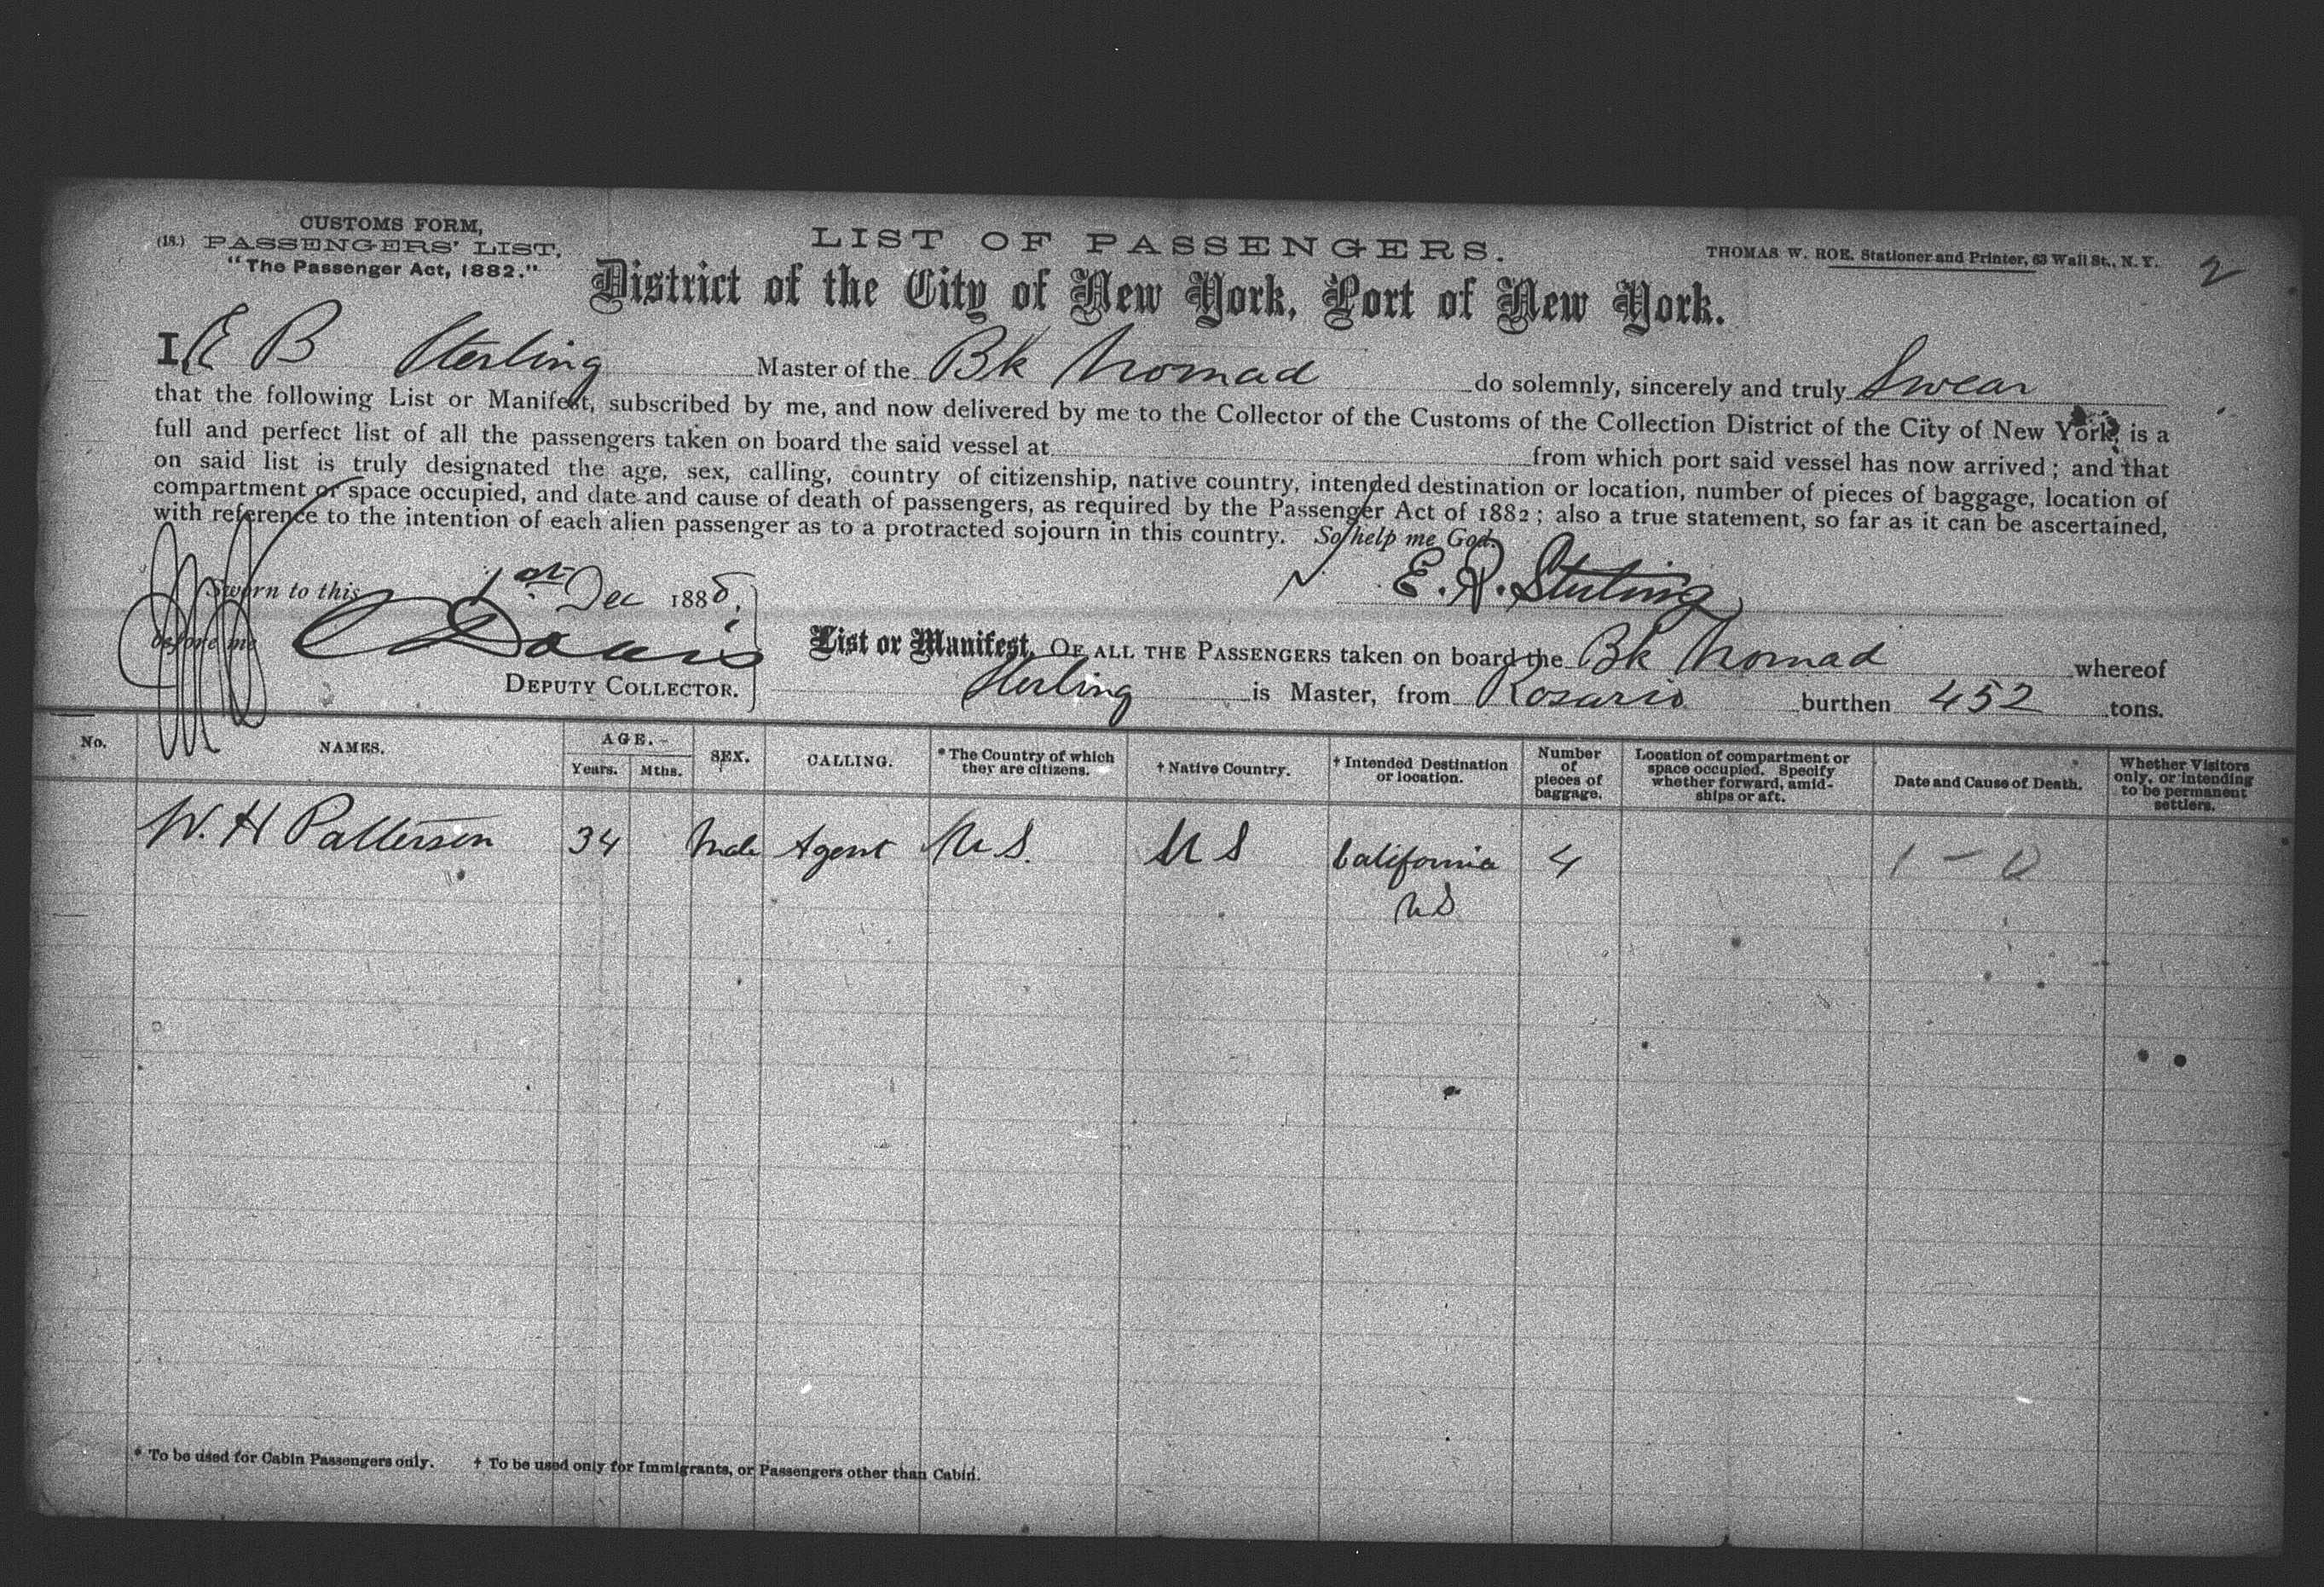 CUSTOMS FORM,
(18.) PASSENGERS' LIST,
"The Passenger Act, 1882."
LIST OF PASSENGERS.
THOMAS W. ROE, Stationer and Printer, 63 Wall St., N. Y.
2
District of the City of New York, Port of New York.
I, E B Sterling Master of the Bk Nomad do solemnly, sincerely and truly Swear
that the following List or Manifest, subscribed by me, and now delivered by me to the Collector of the Customs of the Collection District of the City of New York, is a
full and perfect list of all the passengers taken on board the said vessel at from which port said vessel has now arrived; and that
on said list is truly designated the age, sex, calling, country of citizenship, native country, intended destination or location, number of pieces of baggage, location of
compartment or space occupied, and date and cause of death of passengers, as required by the Passenger Act of 1882; also a true statement, so far as it can be ascertained,
with reference to the intention of each alien passenger as to a protracted sojourn in this country. So help me God.
Sworn to this 1st Dec 1888,
E. R. Sterling
before me Davis
DEPUTY COLLECTOR.
List or Manifest, OF ALL THE PASSENGERS taken on board the Bk Nomad whereof
Sterling is Master, from Rosario burthen 452 tons.
No. NAMES. AGE. Years. Mths. SEX. CALLING. * The Country of which they are citizens. † Native Country. † Intended Destination or location. Number of pieces of baggage. Location of compartment or space occupied. Specify whether forward, amidships or aft. Date and Cause of Death. Whether Visitors only, or intending to be permanent settlers.
W. H Patterson 34 Male Agent U S. U S California 4
U S
* To be used for Cabin Passengers only. † To be used only for Immigrants, or Passengers other than Cabin.